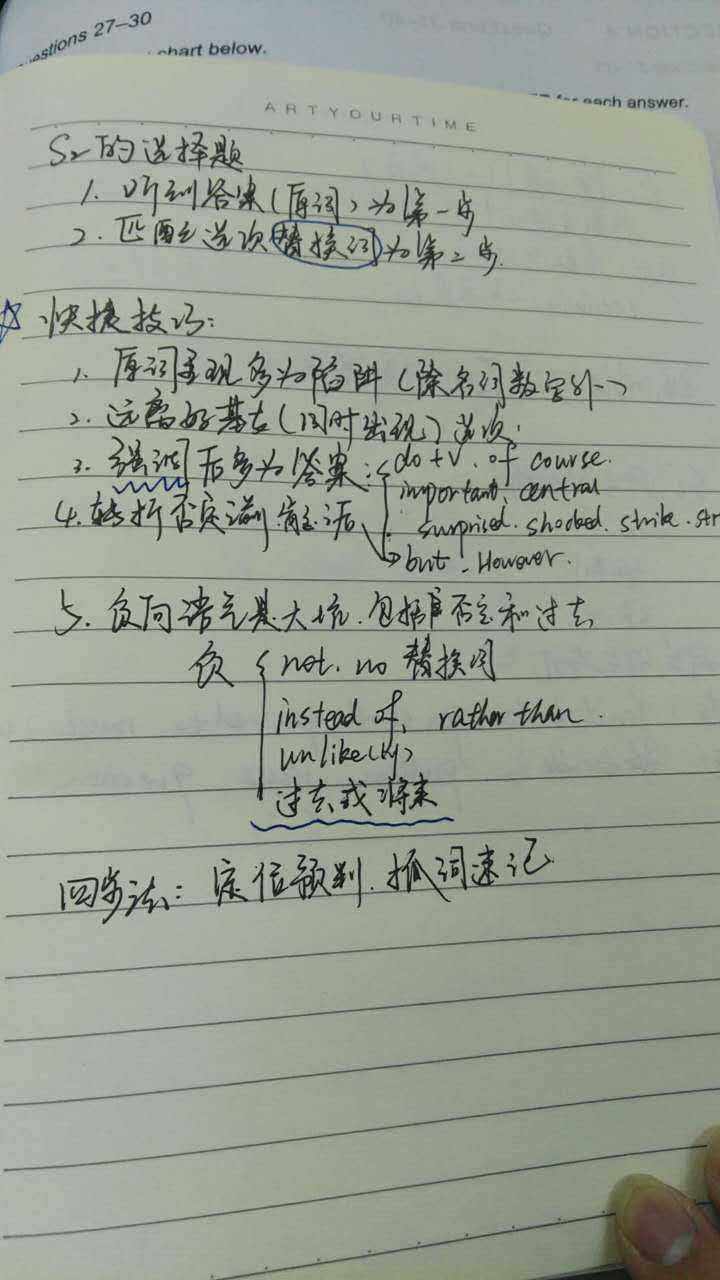 estions 27–30
chart below.
for each answer.
ARTYOURTIME
S2的选择题
1. 听到答案(原词)为第一步
2. 匹配选项替换词为第二步.
☆快捷技巧:
1. 原词重现多为陷阱(除名词数字外)
2. 远离好基友(同时出现)选项.
3. 强调后多为答案: do+v. of course.
important, central
surprised. shocked. strike. str
4. 转折否定
but. However.
5. 负向语气是大坑. 包括否定和过去
负 { not. no 替换词
instead of, rather than.
unlike(ly)
过去或将来
四步法: 定位预判. 抓词速记